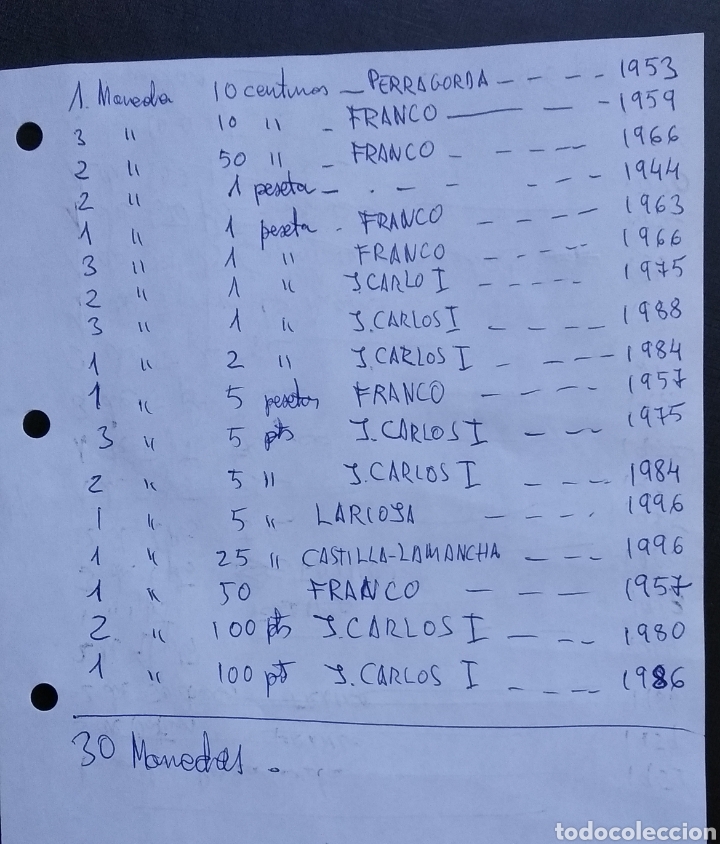 1. Moneda 10 centimos — PERRAGORDA — — — - 1953
3 " 10 " - FRANCO — — — - 1959
2 " 50 " - FRANCO - - - - - 1966
2 " 1 peseta - . - - - - - 1944
1 " 1 peseta . FRANCO - - - - 1963
3 " 1 " FRANCO - - - - 1966
2 " 1 " J.CARLO I - - - - - 1975
3 " 1 " J.CARLOS I - - - - 1988
1 " 2 " J.CARLOS I - - - - - 1984
1 " 5 pesetas FRANCO - - - - 1957
3 " 5 pts J.CARLOS I - - - 1975
2 " 5 " J.CARLOS I - - - - 1984
1 " 5 " LARIOJA - - - - 1996
1 " 25 " CASTILLA-LAMANCHA - - - 1996
1 " 50 FRANCO - - - 1957
2 " 100 pts J.CARLOS I - - - 1980
1 " 100 pts J.CARLOS I - - - - 1986
30 Monedas.
todocoleccion